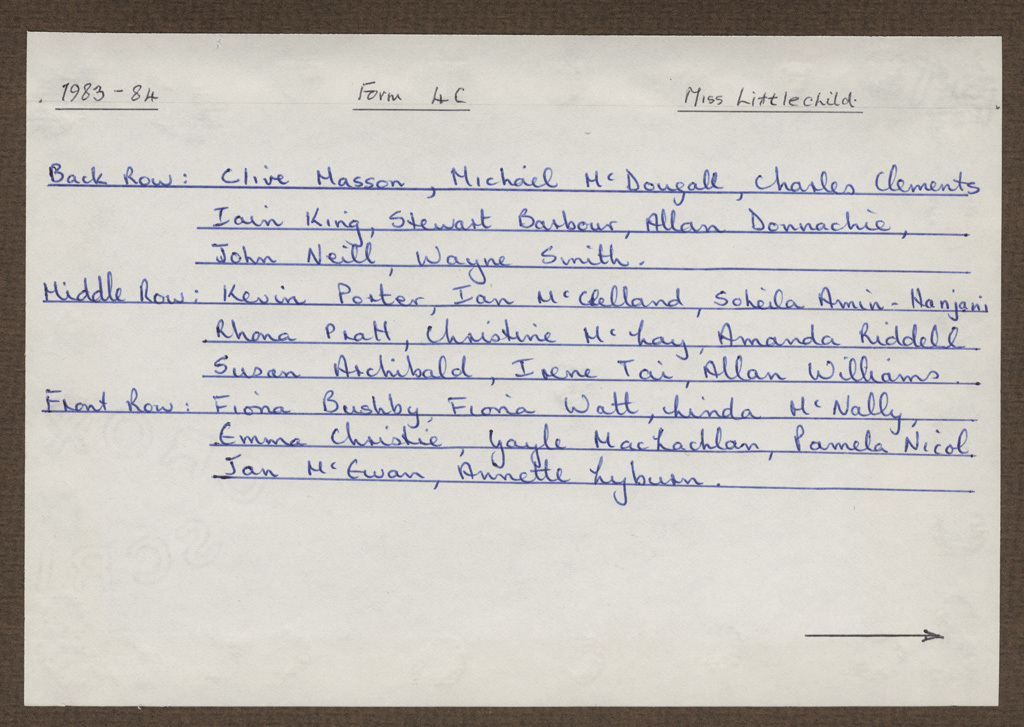 1983-84 Form 4C Miss Littlechild.
Back Row: Clive Masson, Michael McDougall, Charles Clements
Iain King, Stewart Barbour, Allan Donnachie,
John Neill, Wayne Smith.
Middle Row: Kevin Porter, Ian McClelland, Soheila Amin-Hanjani
Rhona Pratt, Christine McLay, Amanda Riddell
Susan Archibald, Irene Tai, Allan Williams.
Front Row: Fiona Bushby, Fiona Watt, Linda McNally,
Emma Christie, Gayle MacLachlan, Pamela Nicol.
Jan McEwan, Annette Lyburn.